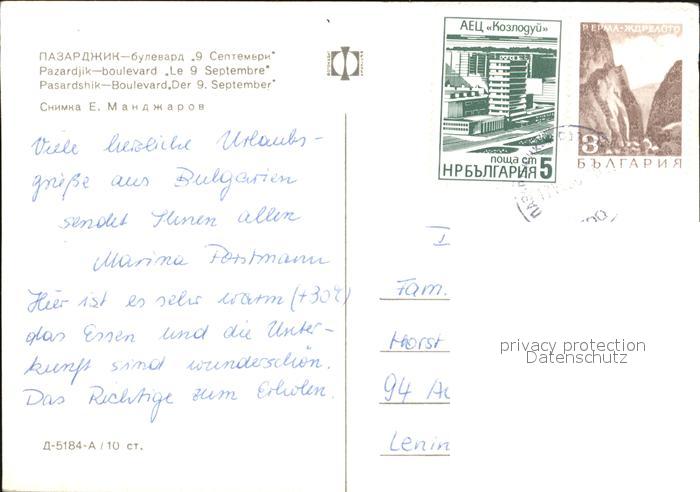 ПАЗАРДЖИК—булевард „9 Септември"
Pazardjik—boulevard „Le 9 Septembre"
Pasardshik—Boulevard„Der 9. September"
Снимка Е. Манджаров
Viele herzliche Urlaubs-
grüße aus Bulgarien
sendet Ihnen allen
Marina Forstmann
Hier ist es sehr warm (+30°C)
das Essen und die Unter-
kunft sind wunderschön.
Das Richtige zum Erholen.
Д-5184-А / 10 ст.
АЕЦ „Козлодуй"
поща ст
НРБЪЛГАРИЯ 5
Р. ЕРМА-ЖДРЕЛОТО
8
БЪЛГАРИЯ
Fam.
Horst
94
Lenin
privacy protection
Datenschutz